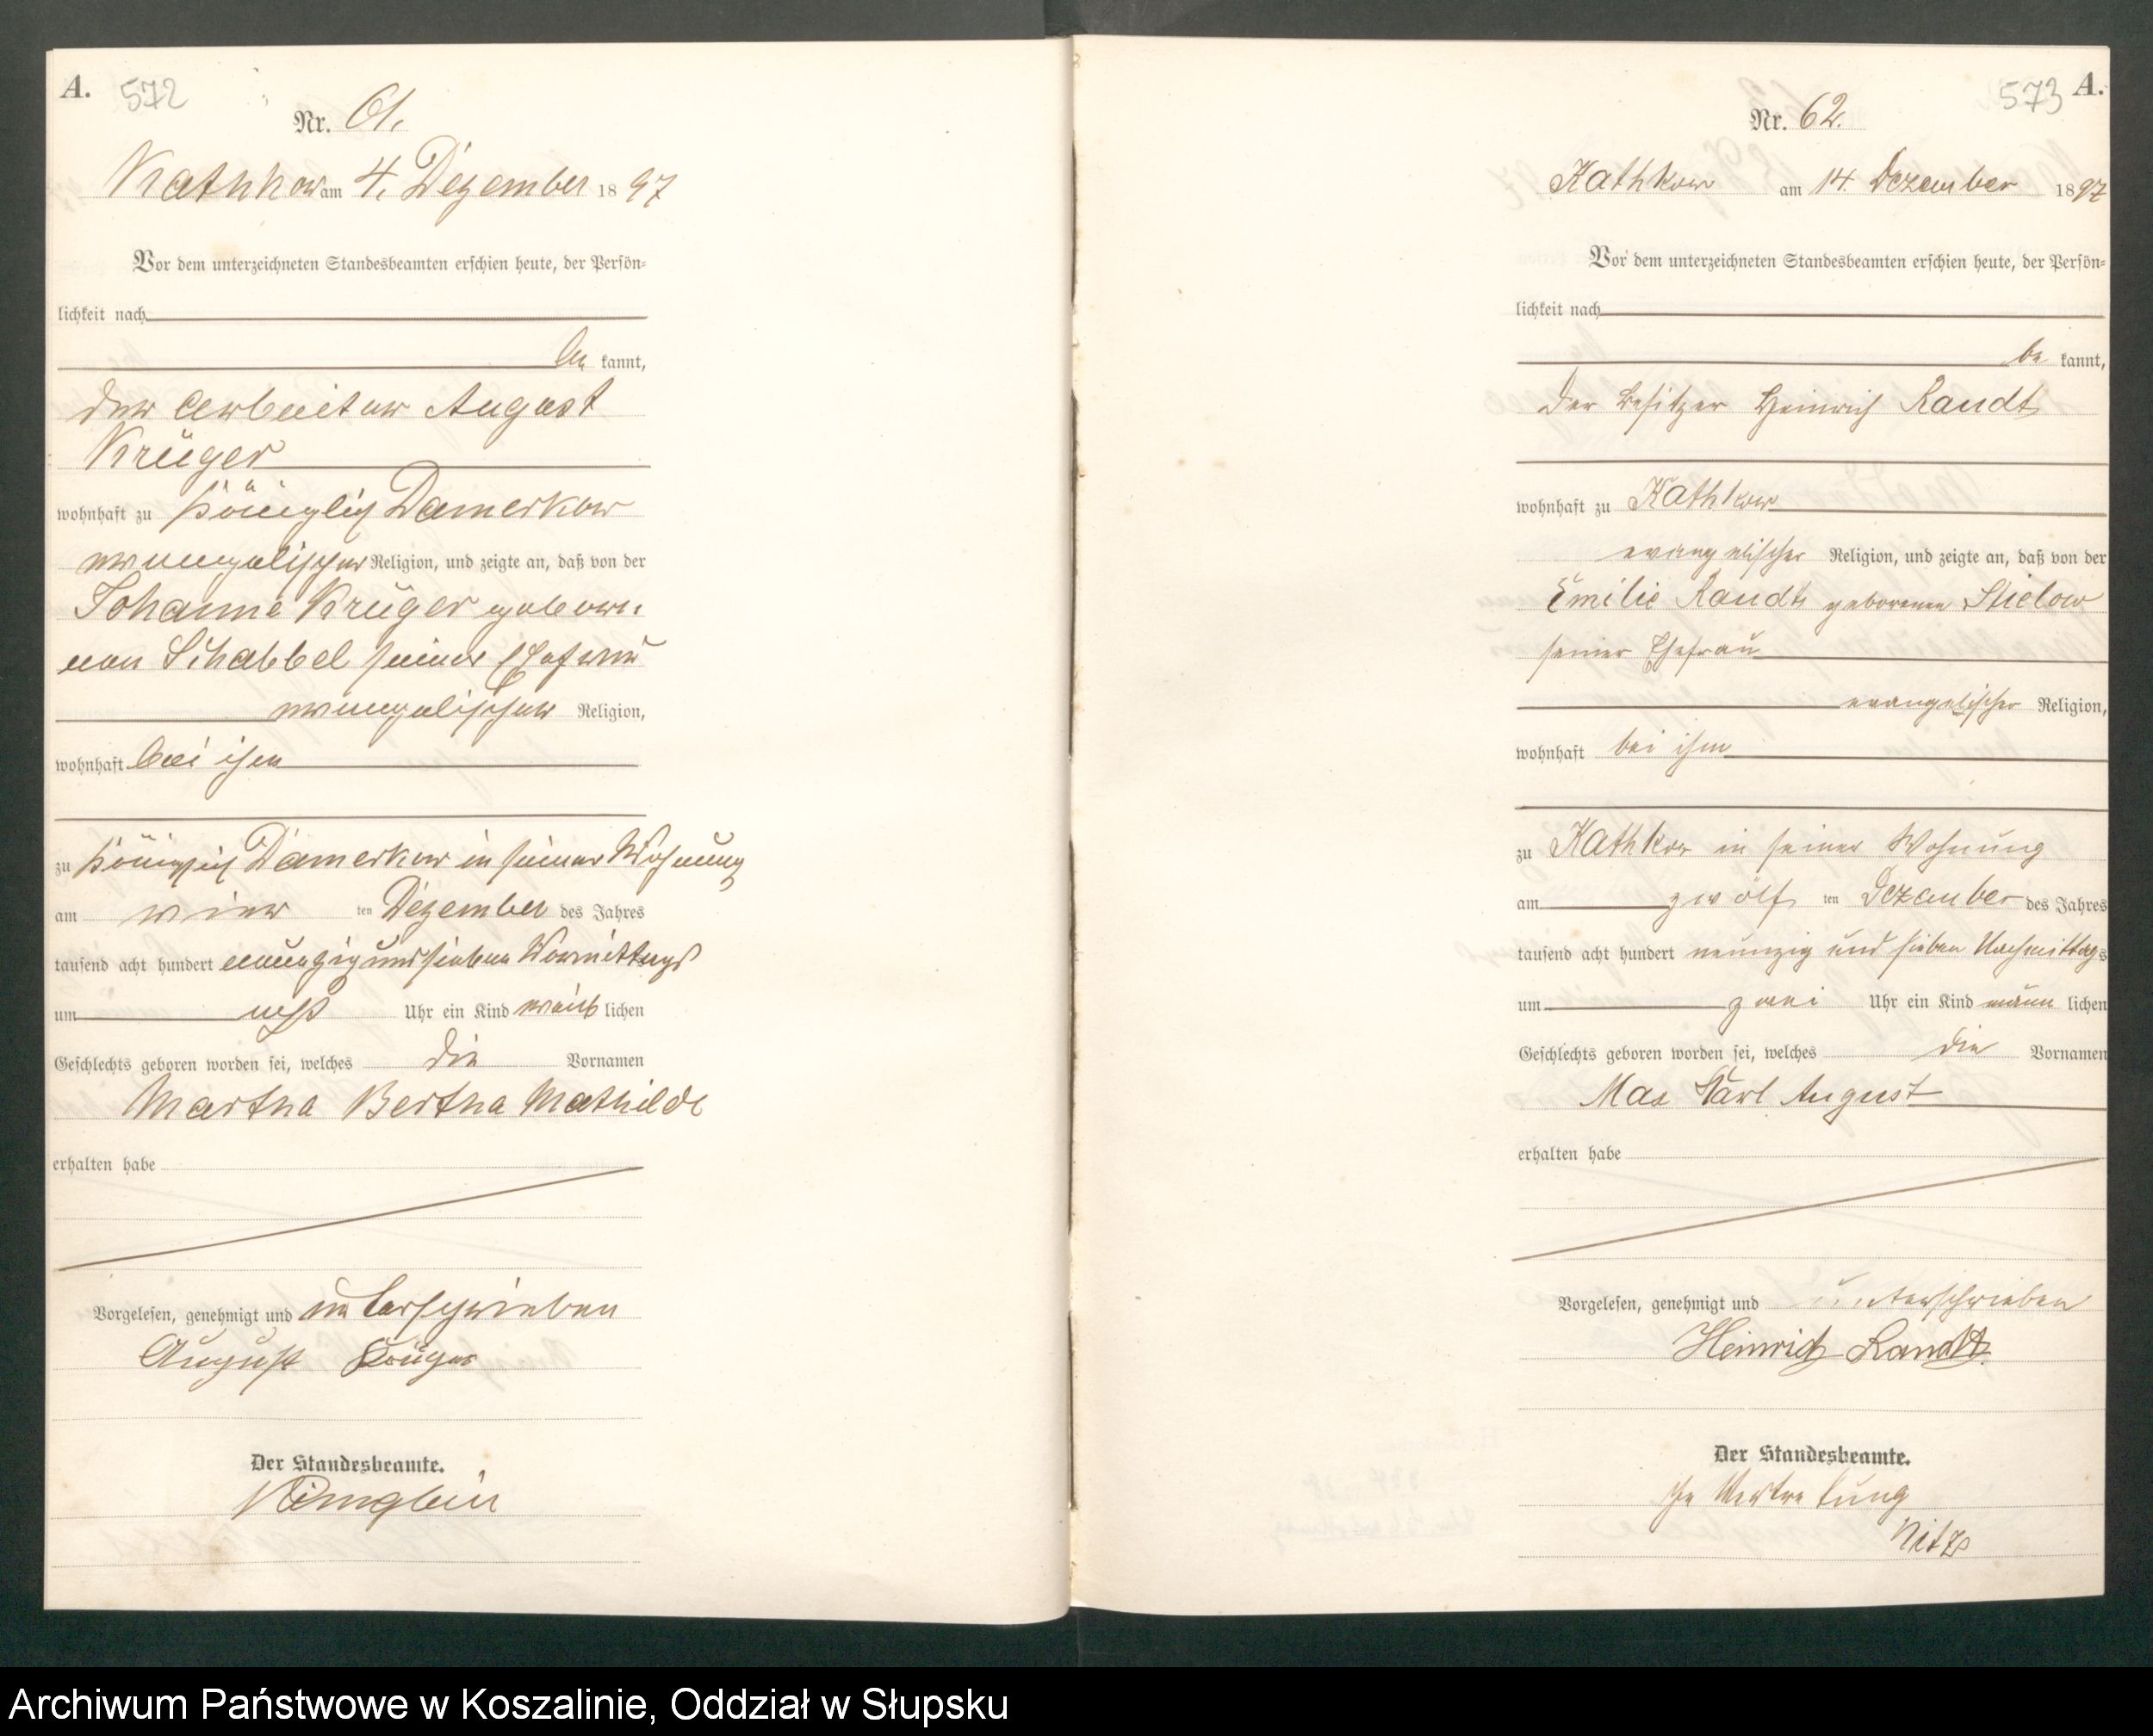 A. 572
Nr. 61.
Kathkow am 4. Dezember 1897
Vor dem unterzeichneten Standesbeamten erschien heute, der Persön-
lichkeit nach
be kannt,
der Arbeiter August
Krüger
wohnhaft zu Königlich Damerkow
evangelischer Religion, und zeigte an, daß von der
Johanne Krüger gebore-
nen Schabbel seiner Ehefrau
evangelischer Religion,
wohnhaft bei ihm
zu Königlich Damerkow in seiner Wohnung
am vier ten Dezember des Jahres
tausend acht hundert neunzig und sieben Vormittags
um acht Uhr ein Kind weib lichen
Geschlechts geboren worden sei, welches die Vornamen
Martha Bertha Mathilde
erhalten habe
Vorgelesen, genehmigt und unterschrieben
August Krüger
Der Standesbeamte.
573 A.
Nr. 62.
Kathkow am 14. Dezember 1897
Vor dem unterzeichneten Standesbeamten erschien heute, der Persön-
lichkeit nach
be kannt,
der Besitzer Heinrich Raudt
wohnhaft zu Kathkow
evangelischer Religion, und zeigte an, daß von der
Emilie Raudt geborenen Stielow
seiner Ehefrau
evangelischer Religion,
wohnhaft bei ihm
zu Kathkow in seiner Wohnung
am zwölf ten Dezember des Jahres
tausend acht hundert neunzig und sieben Nachmittags
um zwei Uhr ein Kind männ lichen
Geschlechts geboren worden sei, welches die Vornamen
Max Karl August
erhalten habe
Vorgelesen, genehmigt und unterschrieben
Heinrich Raudt
Der Standesbeamte.
In Vertretung
Nitz
Archiwum Państwowe w Koszalinie, Oddział w Słupsku